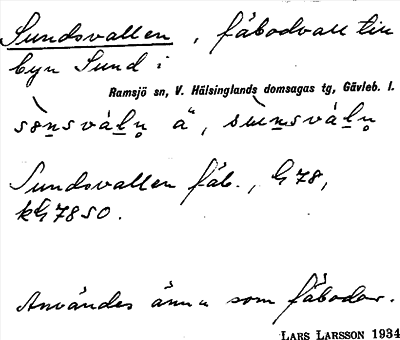 Sundsvallen, fäbodvall till
byn Sund i
Ramsjö sn, V. Hälsinglands domsagas tg, Gävleb. l.
Sundsvallen fäb., G 78,
kG 7850.
Användes ännu som fäbodar.
LARS LARSSON 1934